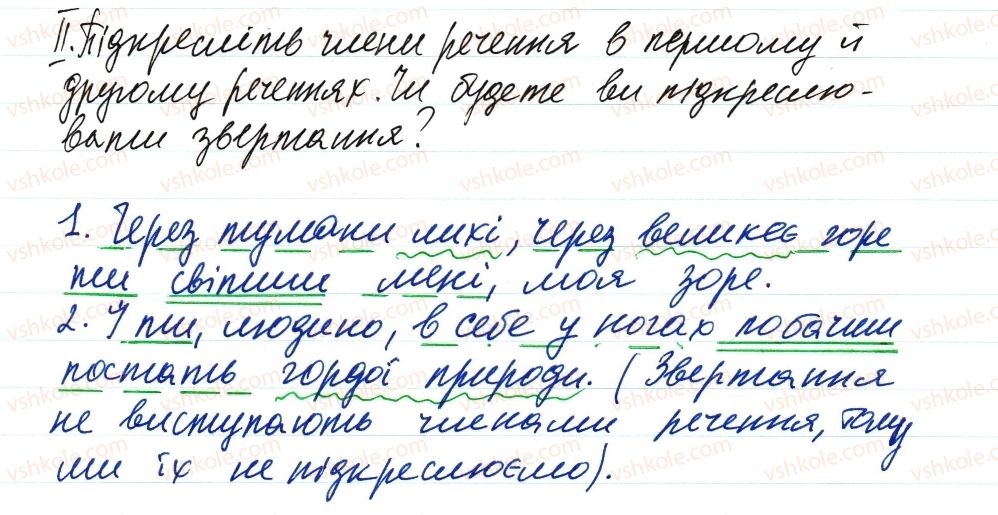 II. Підкресліть члени речення в першому й
другому реченнях. Чи будете ви підкреслю-
вати звертання?
1. Через тумани лихі, через великеє горе
ти світиш мені, моя зоре.
2. І ти, людино, в себе у ногах побачиш
постать гордої природи. (Звертання
не виступають членами речення, тому
ми їх не підкреслюємо).